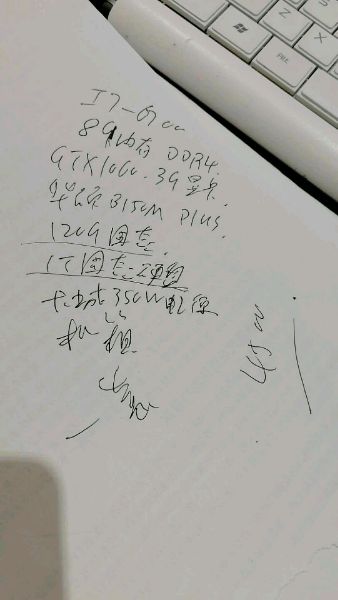 I7-6700
8G内存 DDR4
GTX1060.3G显卡
华硕B150M PLUS
120G固态
1T固态硬盘
长城350W电源
机箱
4500